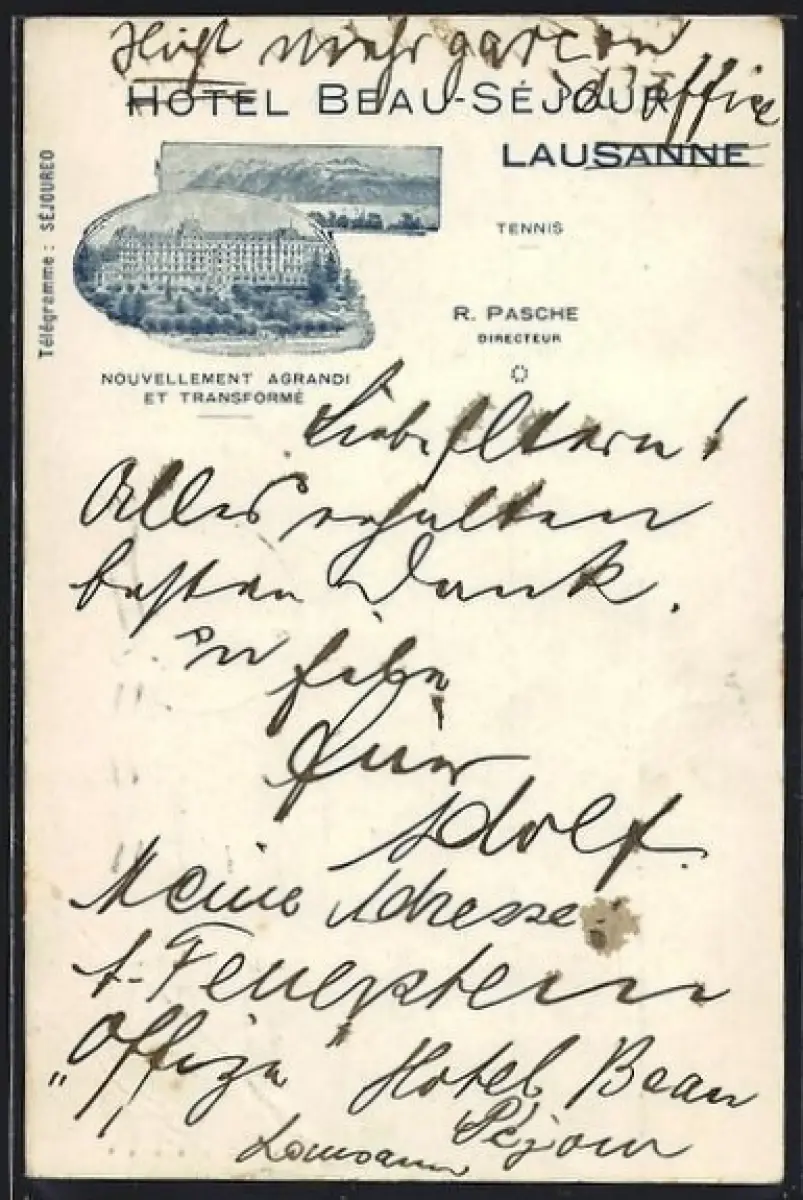 Nicht mehr garcon
d'office
HOTEL BEAU-SÉJOUR
LAUSANNE
Télégramme : SÉJOURED
TENNIS
R. PASCHE
DIRECTEUR
NOUVELLEMENT AGRANDI
ET TRANSFORMÉ
Liebe Eltern!
Alles erhalten
besten Dank.
In
Euer
Adolf.
Meine Adresse
A. Feuerstein
"Offize" Hotel Beau
Séjour
Lausanne